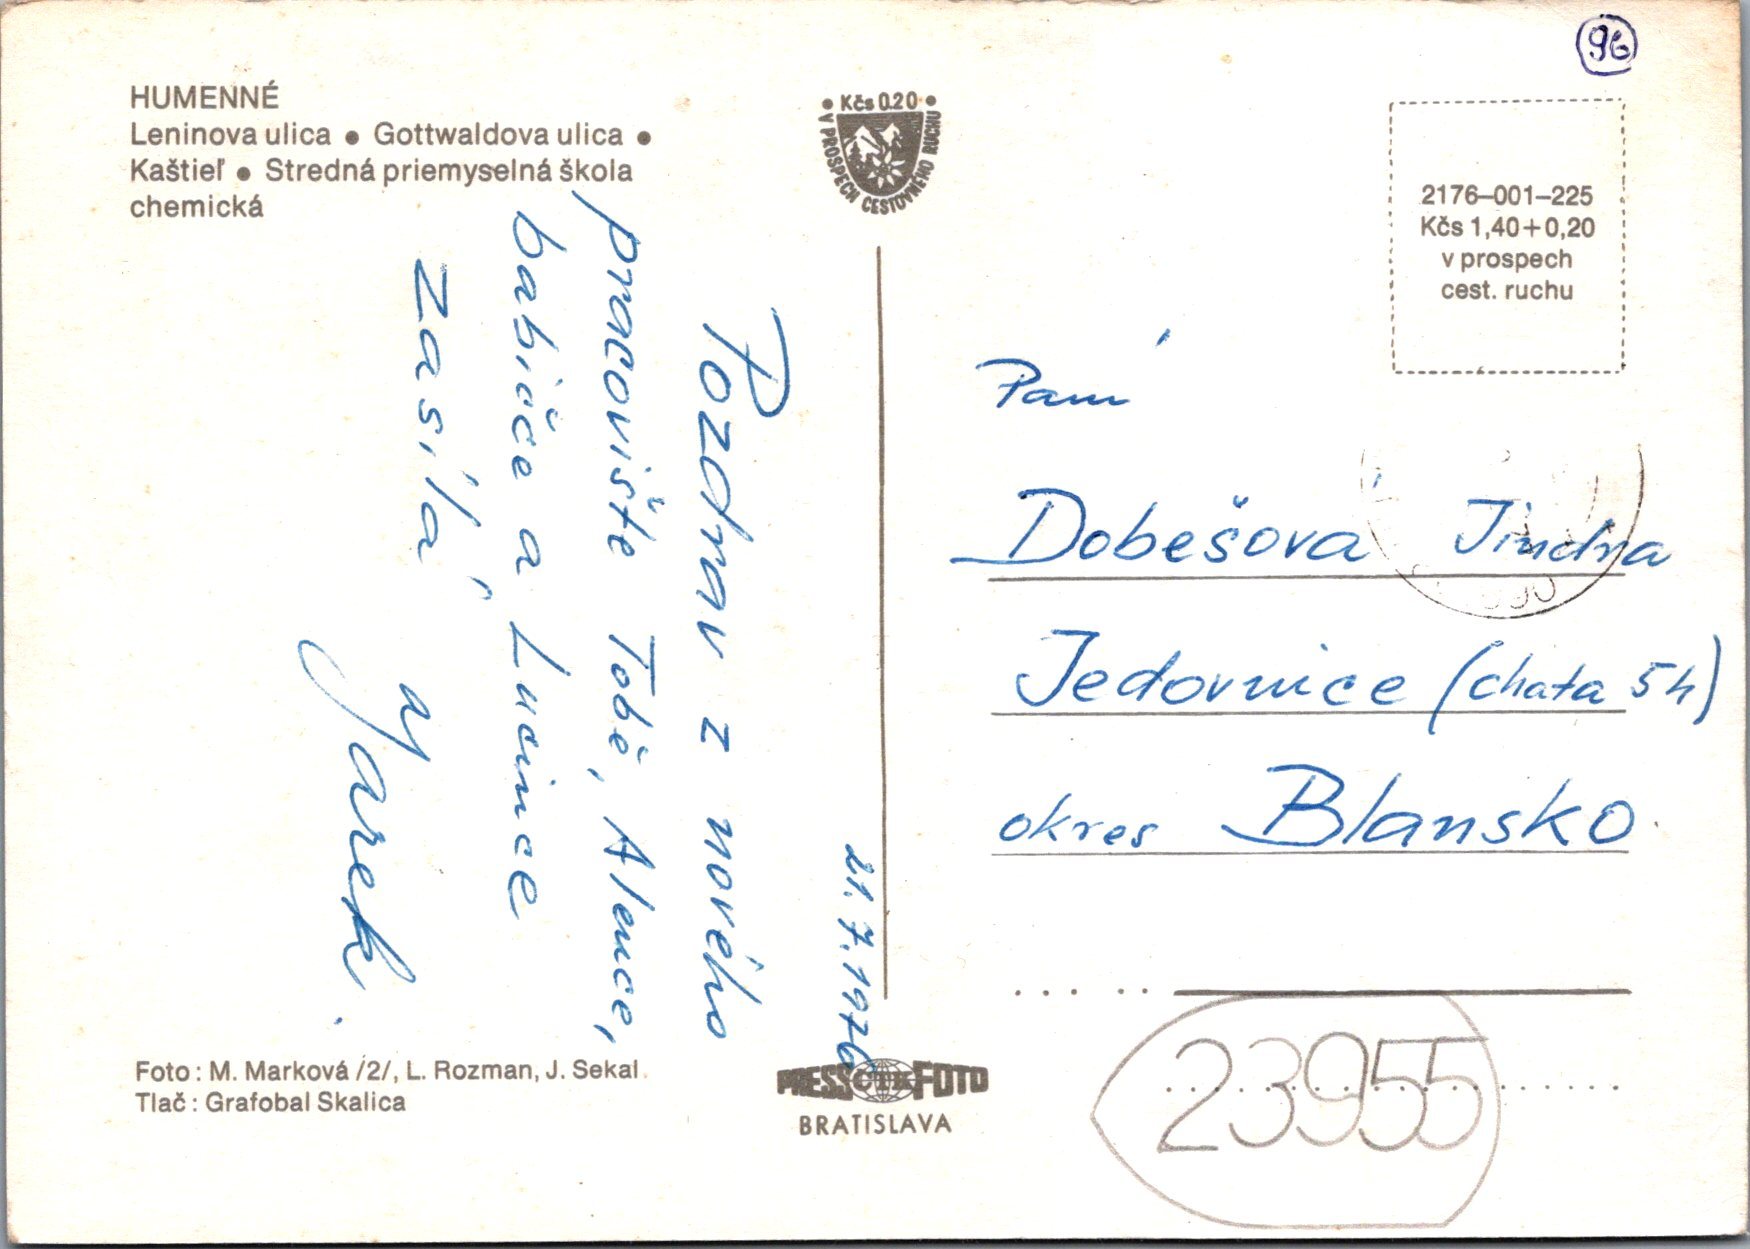 HUMENNÉ
Leninova ulica ● Gottwaldova ulica ●
Kaštieľ ● Stredná priemyselná škola
chemická
● Kčs 0.20 ●
V PROSPECH CESTOVNÉHO RUCHU
96
2176–001–225
Kčs 1,40+0,20
v prospech
cest. ruchu
Pozdrav z nového
pracoviště Tobě, Alence,
babičce a Lucince
zasílá
Jarek.
21.7.1976
Paní
Dobešová Jindra
Jedovnice (chata 54)
okres Blansko
Foto: M. Marková /2/, L. Rozman, J. Sekal
Tlač: Grafobal Skalica
PRESSČTKFOTO
BRATISLAVA
23955